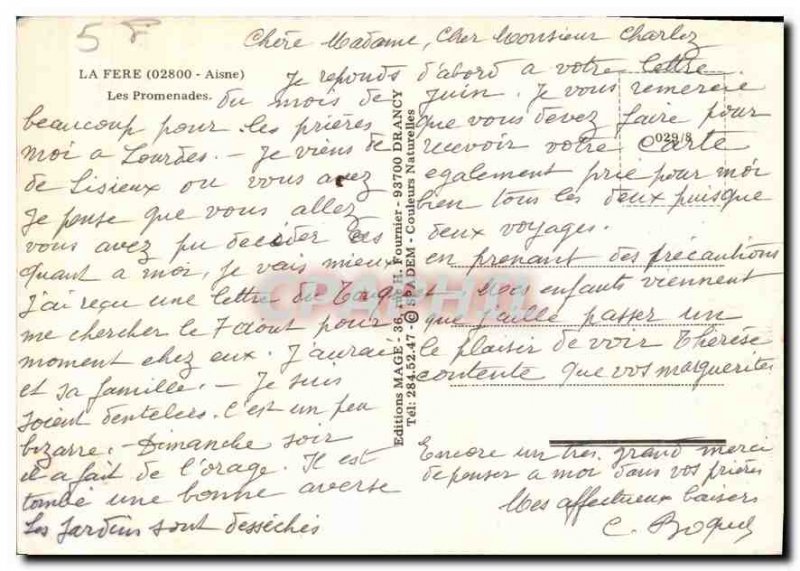 5 F
Chère Madame, Cher Monsieur Charlez
LA FERE (02800 - Aisne)
Les Promenades.
Je reponds d'abord a votre lettre
du mois de juin. Je vous remercie
beaucoup pour les prières que vous devez faire pour
moi a Lourdes. - Je viens de recevoir votre carte
de Lisieux ou vous avez egalement prié pour moi
Je pense que vous allez bien tous les deux puisque
vous avez pu decider ces deux voyages.
Quant a moi, je vais mieux en prenant des précautions
J'ai reçu une lettre de et Mes enfants viennent
me chercher le 7 aout pour que j'aille passer un
moment chez eux. J'aurai le plaisir de voir Thérèse
et sa famille. - Je suis contente que vos marguerites
soient dentelées. C'est un peu
bizarre. - Dimanche soir
il a fait de l'orage. Il est
tombé une bonne averse
Les Jardins sont desséchés
Encore un très grand merci
de penser a moi dans vos prières
Mes affectueux baisers
C.
029/8
Editions MAGE - 36, rue H. Fournier - 93700 DRANCY
Tél: 284.52.47 - © SPADEM - Couleurs Naturelles
CPAPHIL